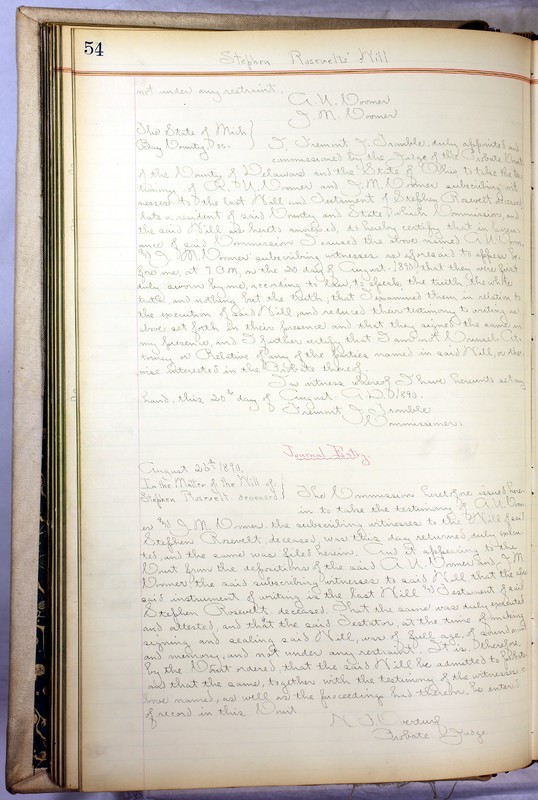 54
Stephen Rosevelts' Will
not under any restraint.
A. U. Vomer
J. M. Vomer
The State of Mich }
Bay County ss. } I, Tremont J. Trumble, duly appointed and
commissioned by the Judge of the Probate Court
of the County of Delaware and the State of Ohio to take the tes-
timony of A. U. Vomer and J. M. Vomer subscribing wit
nesses to the last Will and Testiment of Stephen Rosevelt deceased
late a resident of said County and State, which Commission, and
the said Will is hereto annexed, do hereby certify that in pursu
ance of said Commission I caused the above named A. U. Vomer
and J. M. Vomer subscribing witnesses as aforesaid to appear be-
fore me, at 7 P.M. on the 20 day of August 1890, that they were first
duly sworn by me, according to law, to speak the truth, the whole
truth, and nothing but the truth; that I examined them in relation to
the execution of said Will, and reduced their testimony to writing as
above set forth in their presence and that they signed the same in
my presence, and I further certify that I am not Counsel At-
torney or Relative of any of the parties named in said Will, or other
wise interested in the Probate thereof.
In witness whereof I have hereunto set my
hand, this 20th day of August A.D. 1890.
Tremont J. Trumble
Commissioner.
Journal Entry.
August 26th 1890.
In the Matter of the Will of }
Stephen Rosevelt, deceased } The Commission heretofore issued here-
in to take the testimony of A. U. Vom
er and J. M. Vomer, the subscribing witnesses to the Will of said
Stephen Rosevelt, deceased, was this day returned duly execu-
ted, and the same was filed herein. And it appearing to the
Court from the depositions of the said A. U. Vomer and J. M.
Vomer, the said subscribing witnesses to said Will that the afore
said instrument of writing is the last Will and Testament of said
Stephen Rosevelt, deceased. That the same was duly executed
and attested, and that the said Testator, at the time of making
signing and sealing said Will, was of full age, of sound mind
and memory, and not under any restraint. It is, therefore,
by the Court ordered, that the said Will be admitted to probate
and that the same, together with the testimony of the witnesses a-
bove named, as well as the proceedings had thereon, be entered
of record in this Court
N. F. Overturf
Probate Judge.